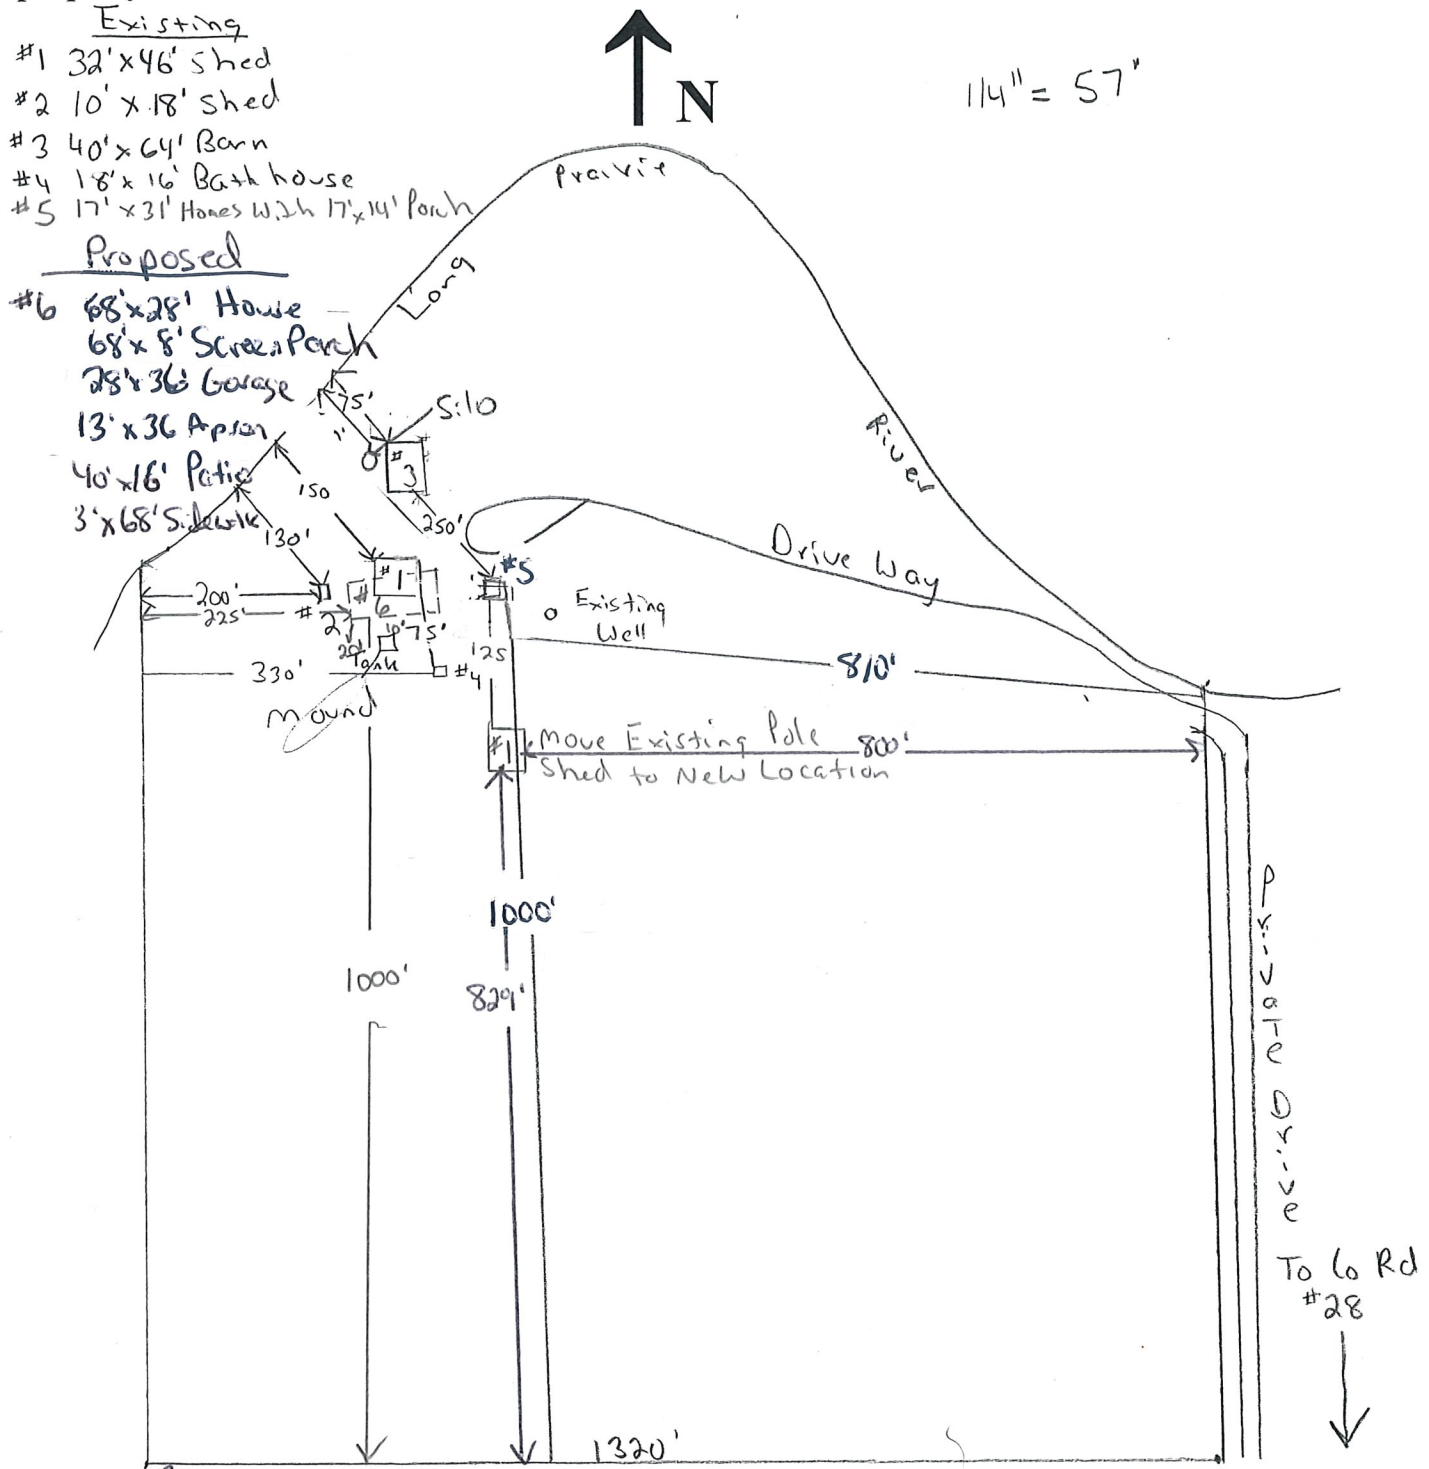 Existing
#1 32'x46' Shed
#2 10' x 18' Shed
#3 40'x64' Barn
#4 18'x16' Bath house
#5 17'x31' Homes With 17'x14' Porch
Proposed
#6 68'x28' House
68'x8' Screen Porch
28'x36' Garage
13'x36 Apron
40'x16' Patio
3'x68' Sidewlk
N
1/4" = 57'
Prairie
Long
River
75'
Silo
#3
150
130'
250'
Drive Way
#5
200'
225'
#2
#1
#6
Existing
Well
20'
10'
75'
Tank
125
330'
#4
Mound
810'
#1
Move Existing Pole
Shed to New Location
800'
1000'
1000'
829'
Private Drive
To Co Rd
#28
1320'